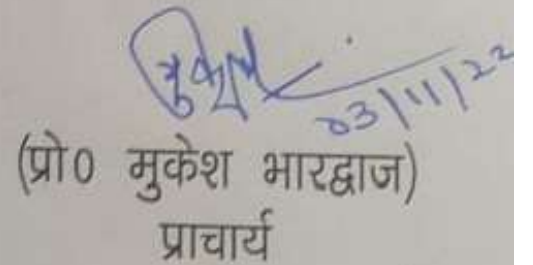 मुकेश
03/11/22
(प्रो0 मुकेश भारद्वाज)
प्राचार्य